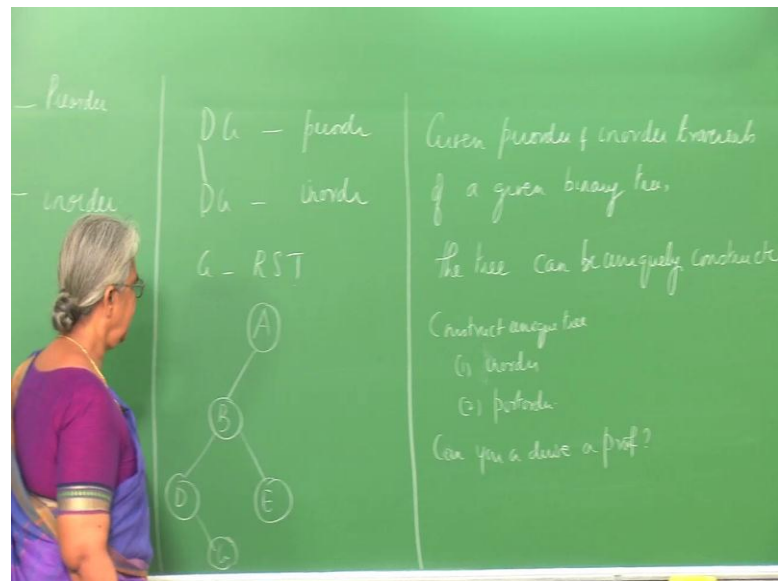 _ Preorder
_ inorder
DG _ preordr
DG _ inordr
G _ RST
A
B
D
E
G
Given preorder & inorder traversals
of a given binary tree,
the tree can be uniquely constructe
Construct unique tree
(1) inorder
(2) postorder
Can you a a proof?